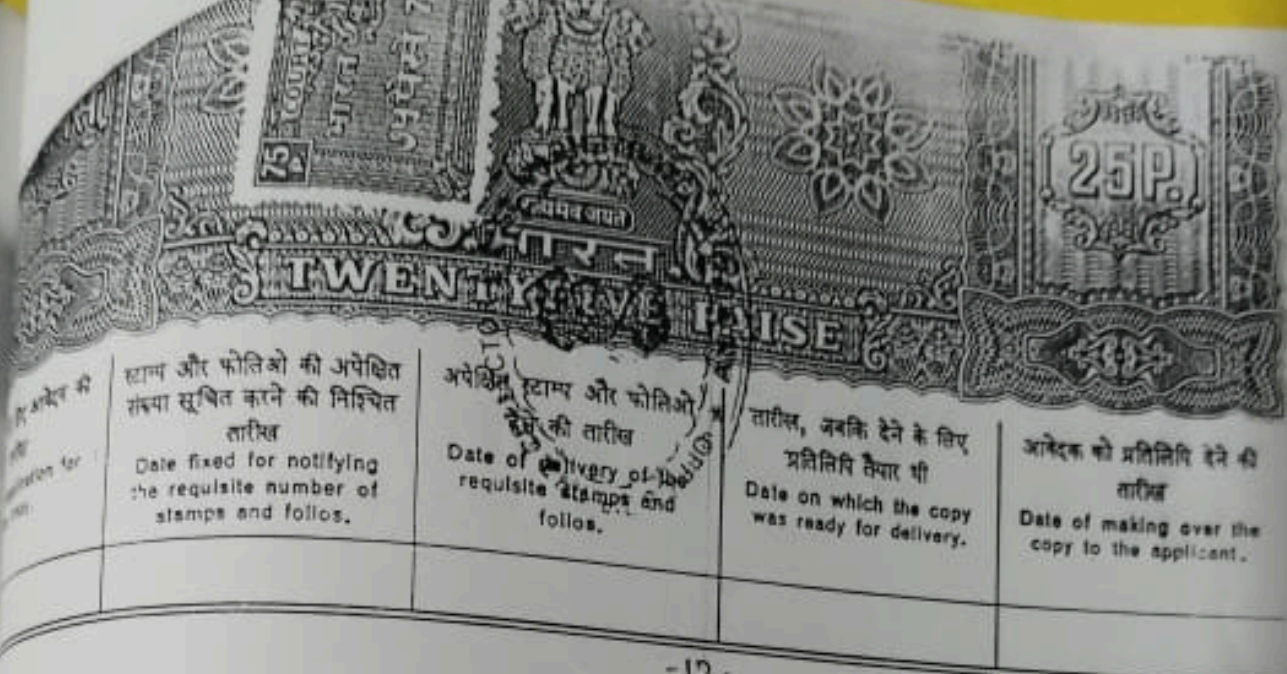 75
P
COURT
भारत
25P.
सत्यमेव जयते
भारत
TWENTY FIVE PAISE
आवेदन की
for
स्टाम्प और फोलिओ की अपेक्षित
संख्या सूचित करने की निश्चित
तारीख
Date fixed for notifying
the requisite number of
stamps and folios.
अपेक्षित स्टाम्प और फोलिओ
देने की तारीख
Date of delivery of the
requisite stamps and
folios.
तारीख, जबकि देने के लिए
प्रतिलिपि तैयार थी
Date on which the copy
was ready for delivery.
आवेदक को प्रतिलिपि देने की
तारीख
Date of making over the
copy to the applicant.